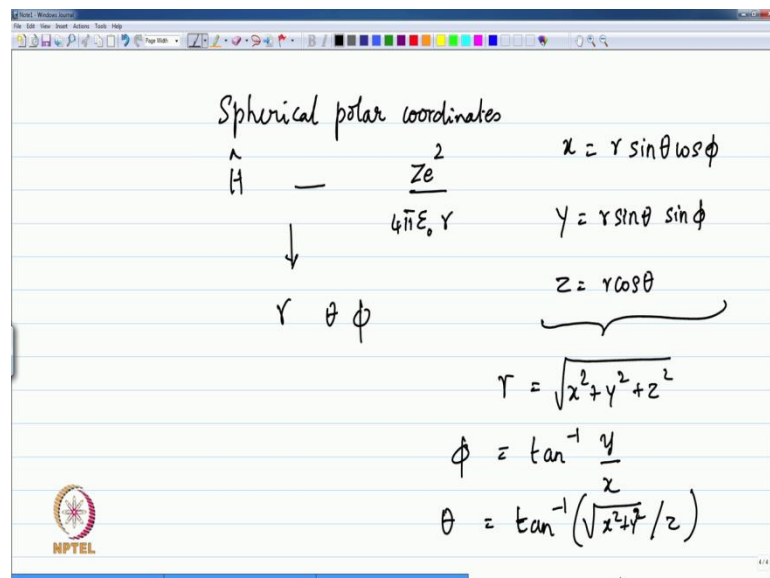 Note1 - Windows Journal
File Edit View Insert Actions Tools Help
Page Width
B I
Spherical polar coordinates
Ĥ — Ze²/4πε₀r
↓
r θ φ
x = r sinθ cosφ
y = r sinθ sinφ
z = r cosθ
r = √x²+y²+z²
φ = tan⁻¹ y/x
θ = tan⁻¹(√x²+y²/z)
NPTEL
4/4